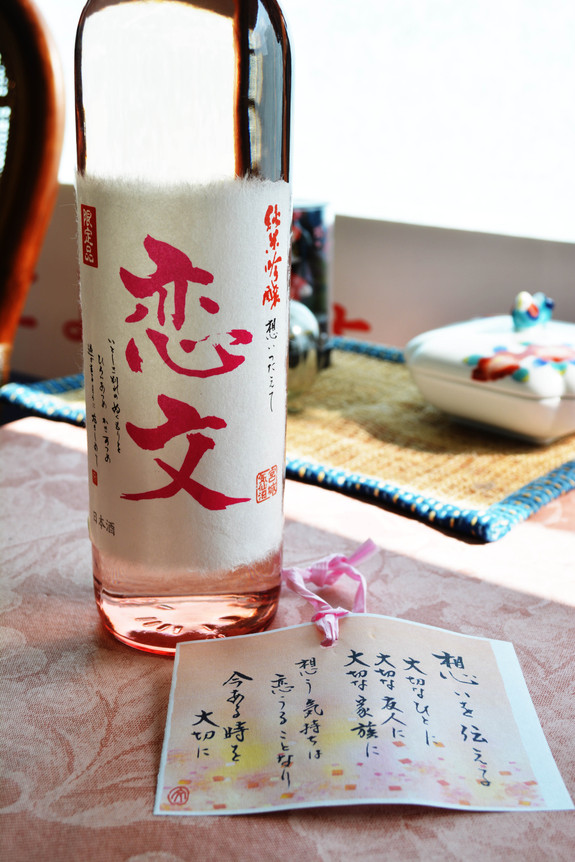 限定品
純米吟醸
想いつたえて
恋文
日本酒
想いを伝える
大切なひとに
大切な友人に
大切な家族に
想う気持ちは
恋うることなり
今ある時を
大切に